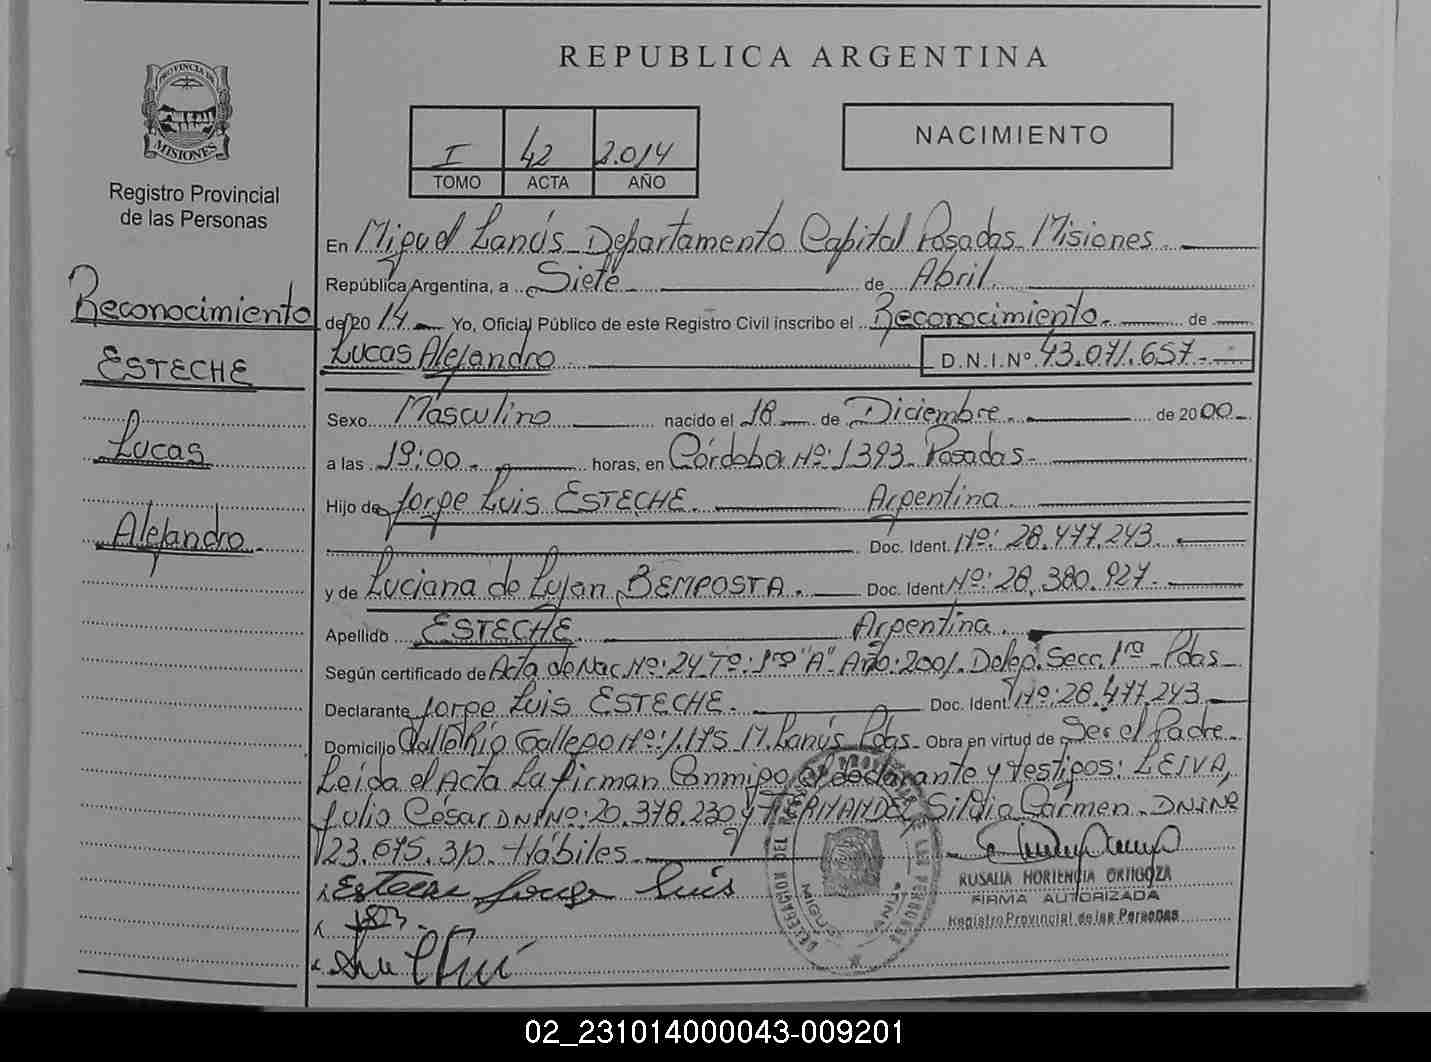 REPUBLICA ARGENTINA
PROVINCIA DE
MISIONES
Registro Provincial
de las Personas
I 42 2.014
TOMO ACTA AÑO
NACIMIENTO
Reconocimiento
ESTECHE
Lucas
Alejandro
En Miguel Lanús Departamento Capital Posadas Misiones
República Argentina, a Siete de Abril
de 20 14 Yo, Oficial Público de este Registro Civil inscribo el Reconocimiento de
Lucas Alejandro D.N.I.Nº 43.071.657.-
Sexo Masculino nacido el 18 de Diciembre de 2000
a las 19:00 horas, en Córdoba Nº: 1393 Posadas
Hijo de Jorge Luis ESTECHE. Argentina
Doc. Ident. Nº: 28.477.243.
y de Luciana de Lujan BEMPOSTA. Doc. Ident Nº: 28.380.927-
Apellido ESTECHE Argentina.
Según certificado de Acta de Nac. Nº: 24 Tº: 1ro "A" Año: 2001. Deleg. Secc. 1ra Pdas
Declarante Jorge Luis ESTECHE. Doc. Ident Nº: 28.477.243.
Domicilio Calle Río Gallego Nº: 1.175 M. Lanús Pdas. Obra en virtud de Ser el Padre
Leída el Acta La firman Conmigo el declarante y testigos: LEIVA,
Julio César DNI Nº: 20.378.230 y FERNANDEZ, Silvia Carmen. DNI Nº
23.675.310. Hábiles.
Esteche Jorge Luis
RUSALIA HORTENCIA ORTIGOZA
FIRMA AUTORIZADA
Registro Provincial de las Personas
02_231014000043-009201